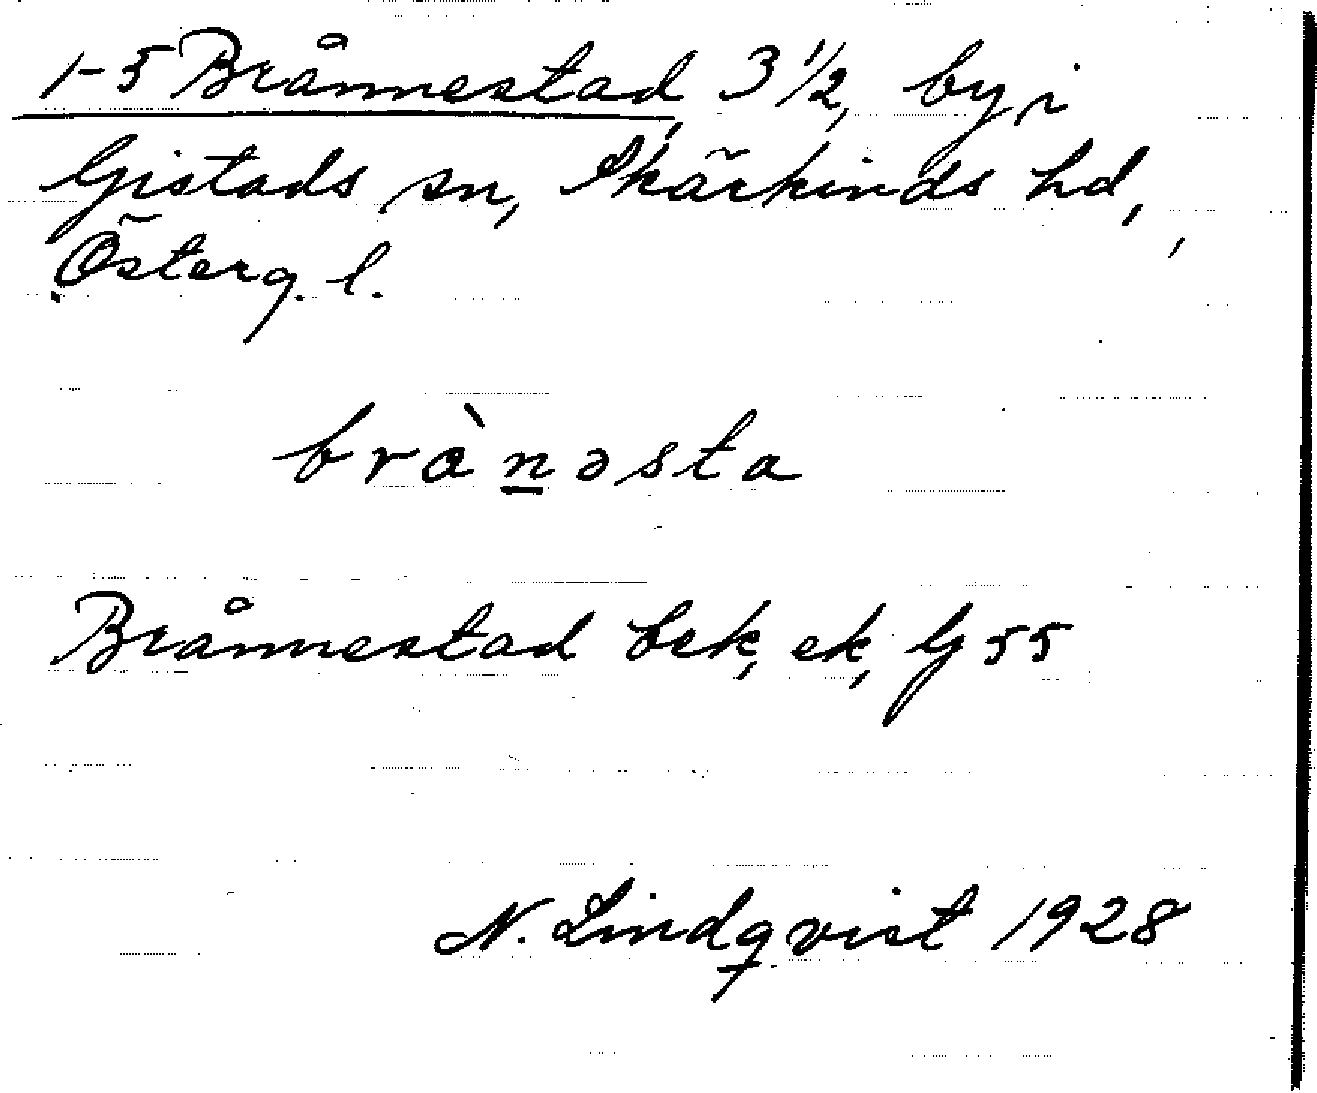 1-5 Brånnestad, 3 1/2, by i
Gistads sn, Skärkinds hd,
Österg. l.
brànəsta
Brånnestad bek, ek, G 55
N. Lindqvist 1928